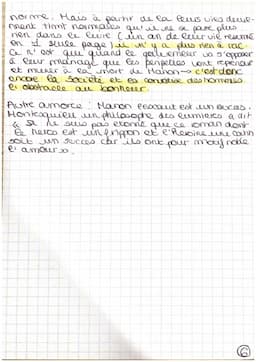 norme. Mais à partir de là leurs vies devie-
nnent tlmt normales qu'il ne se passe plus
rien dans le livre (un an de leur vie résumé
en 1 seule page) il n'y a plus rien à rac-
C. n'est que quand le gouverneur va s'opposer
à leur mariage que les peripeties vont reprendre
et mener à la mort de Manon → c'est donc
encore la société et les conduites des hommes
l'obstacle au bonheur.
Autre amorce : Manon Lescaut est un succès.
Montesquieu un philosophe des lumières a dit
" Je ne suis pas étonné que ce roman dont
le heros est un fripon et l'Heroine une catin
soit un succes car ils ont pour motif noble
l'amour ».
6